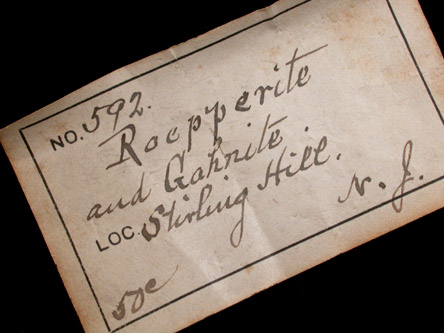 NO. 592.
Roepperite
and Gahnite.
LOC. Stirling Hill.
N. J.
50c